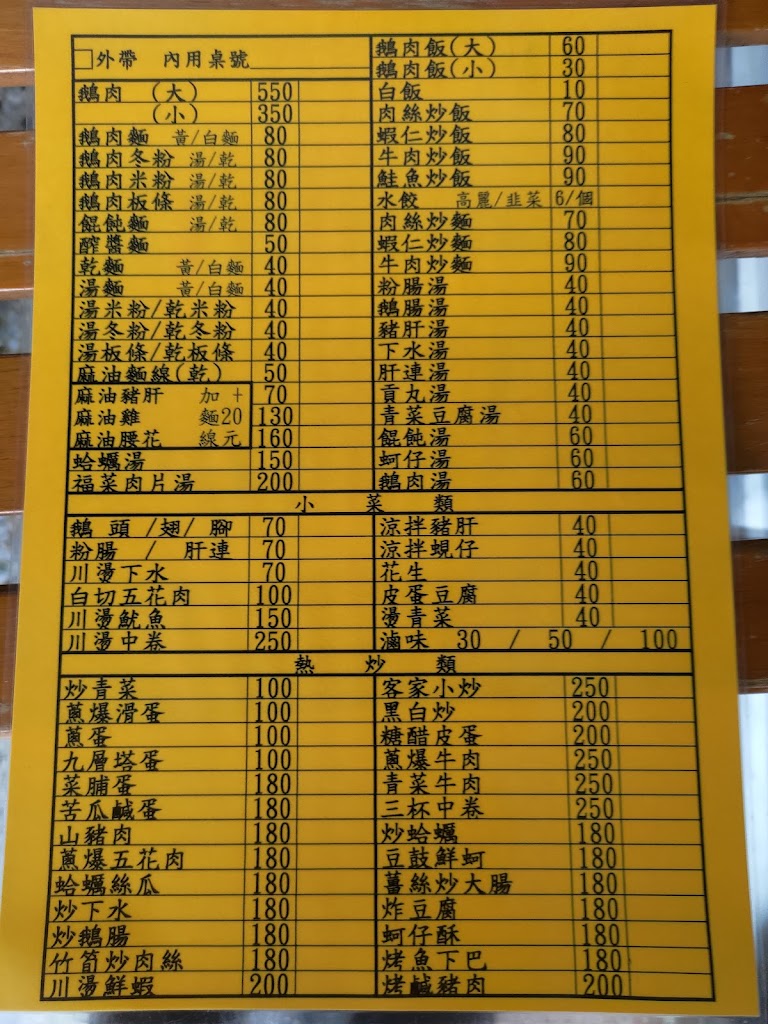 □外帶 內用桌號
鵝肉 (大) 550
(小) 350
鵝肉麵 黃/白麵 80
鵝肉冬粉 湯/乾 80
鵝肉米粉 湯/乾 80
鵝肉板條 湯/乾 80
餛飩麵 湯/乾 80
醡醬麵 50
乾麵 黃/白麵 40
湯麵 黃/白麵 40
湯米粉/乾米粉 40
湯冬粉/乾冬粉 40
湯板條/乾板條 40
麻油麵線(乾) 50
麻油豬肝 加 + 70
麻油雞 麵20 130
麻油腰花 線元 160
蛤蠣湯 150
福菜肉片湯 200
鵝肉飯(大) 60
鵝肉飯(小) 30
白飯 10
肉絲炒飯 70
蝦仁炒飯 80
牛肉炒飯 90
鮭魚炒飯 90
水餃 高麗/韭菜 6/個
肉絲炒麵 70
蝦仁炒麵 80
牛肉炒麵 90
粉腸湯 40
鵝腸湯 40
豬肝湯 40
下水湯 40
肝連湯 40
貢丸湯 40
青菜豆腐湯 40
餛飩湯 60
蚵仔湯 60
鵝肉湯 60
小菜類
鵝頭/翅/腳 70
粉腸 / 肝連 70
川燙下水 70
白切五花肉 100
川燙魷魚 150
川燙中卷 250
涼拌豬肝 40
涼拌蜆仔 40
花生 40
皮蛋豆腐 40
燙青菜 40
滷味 30 / 50 / 100
熱炒類
炒青菜 100
蔥爆滑蛋 100
蔥蛋 100
九層塔蛋 100
菜脯蛋 180
苦瓜鹹蛋 180
山豬肉 180
蔥爆五花肉 180
蛤蠣絲瓜 180
炒下水 180
炒鵝腸 180
竹筍炒肉絲 180
川燙鮮蝦 200
客家小炒 250
黑白炒 200
糖醋皮蛋 200
蔥爆牛肉 250
青菜牛肉 250
三杯中卷 250
炒蛤蠣 180
豆鼓鮮蚵 180
薑絲炒大腸 180
炸豆腐 180
蚵仔酥 180
烤魚下巴 180
烤鹹豬肉 200